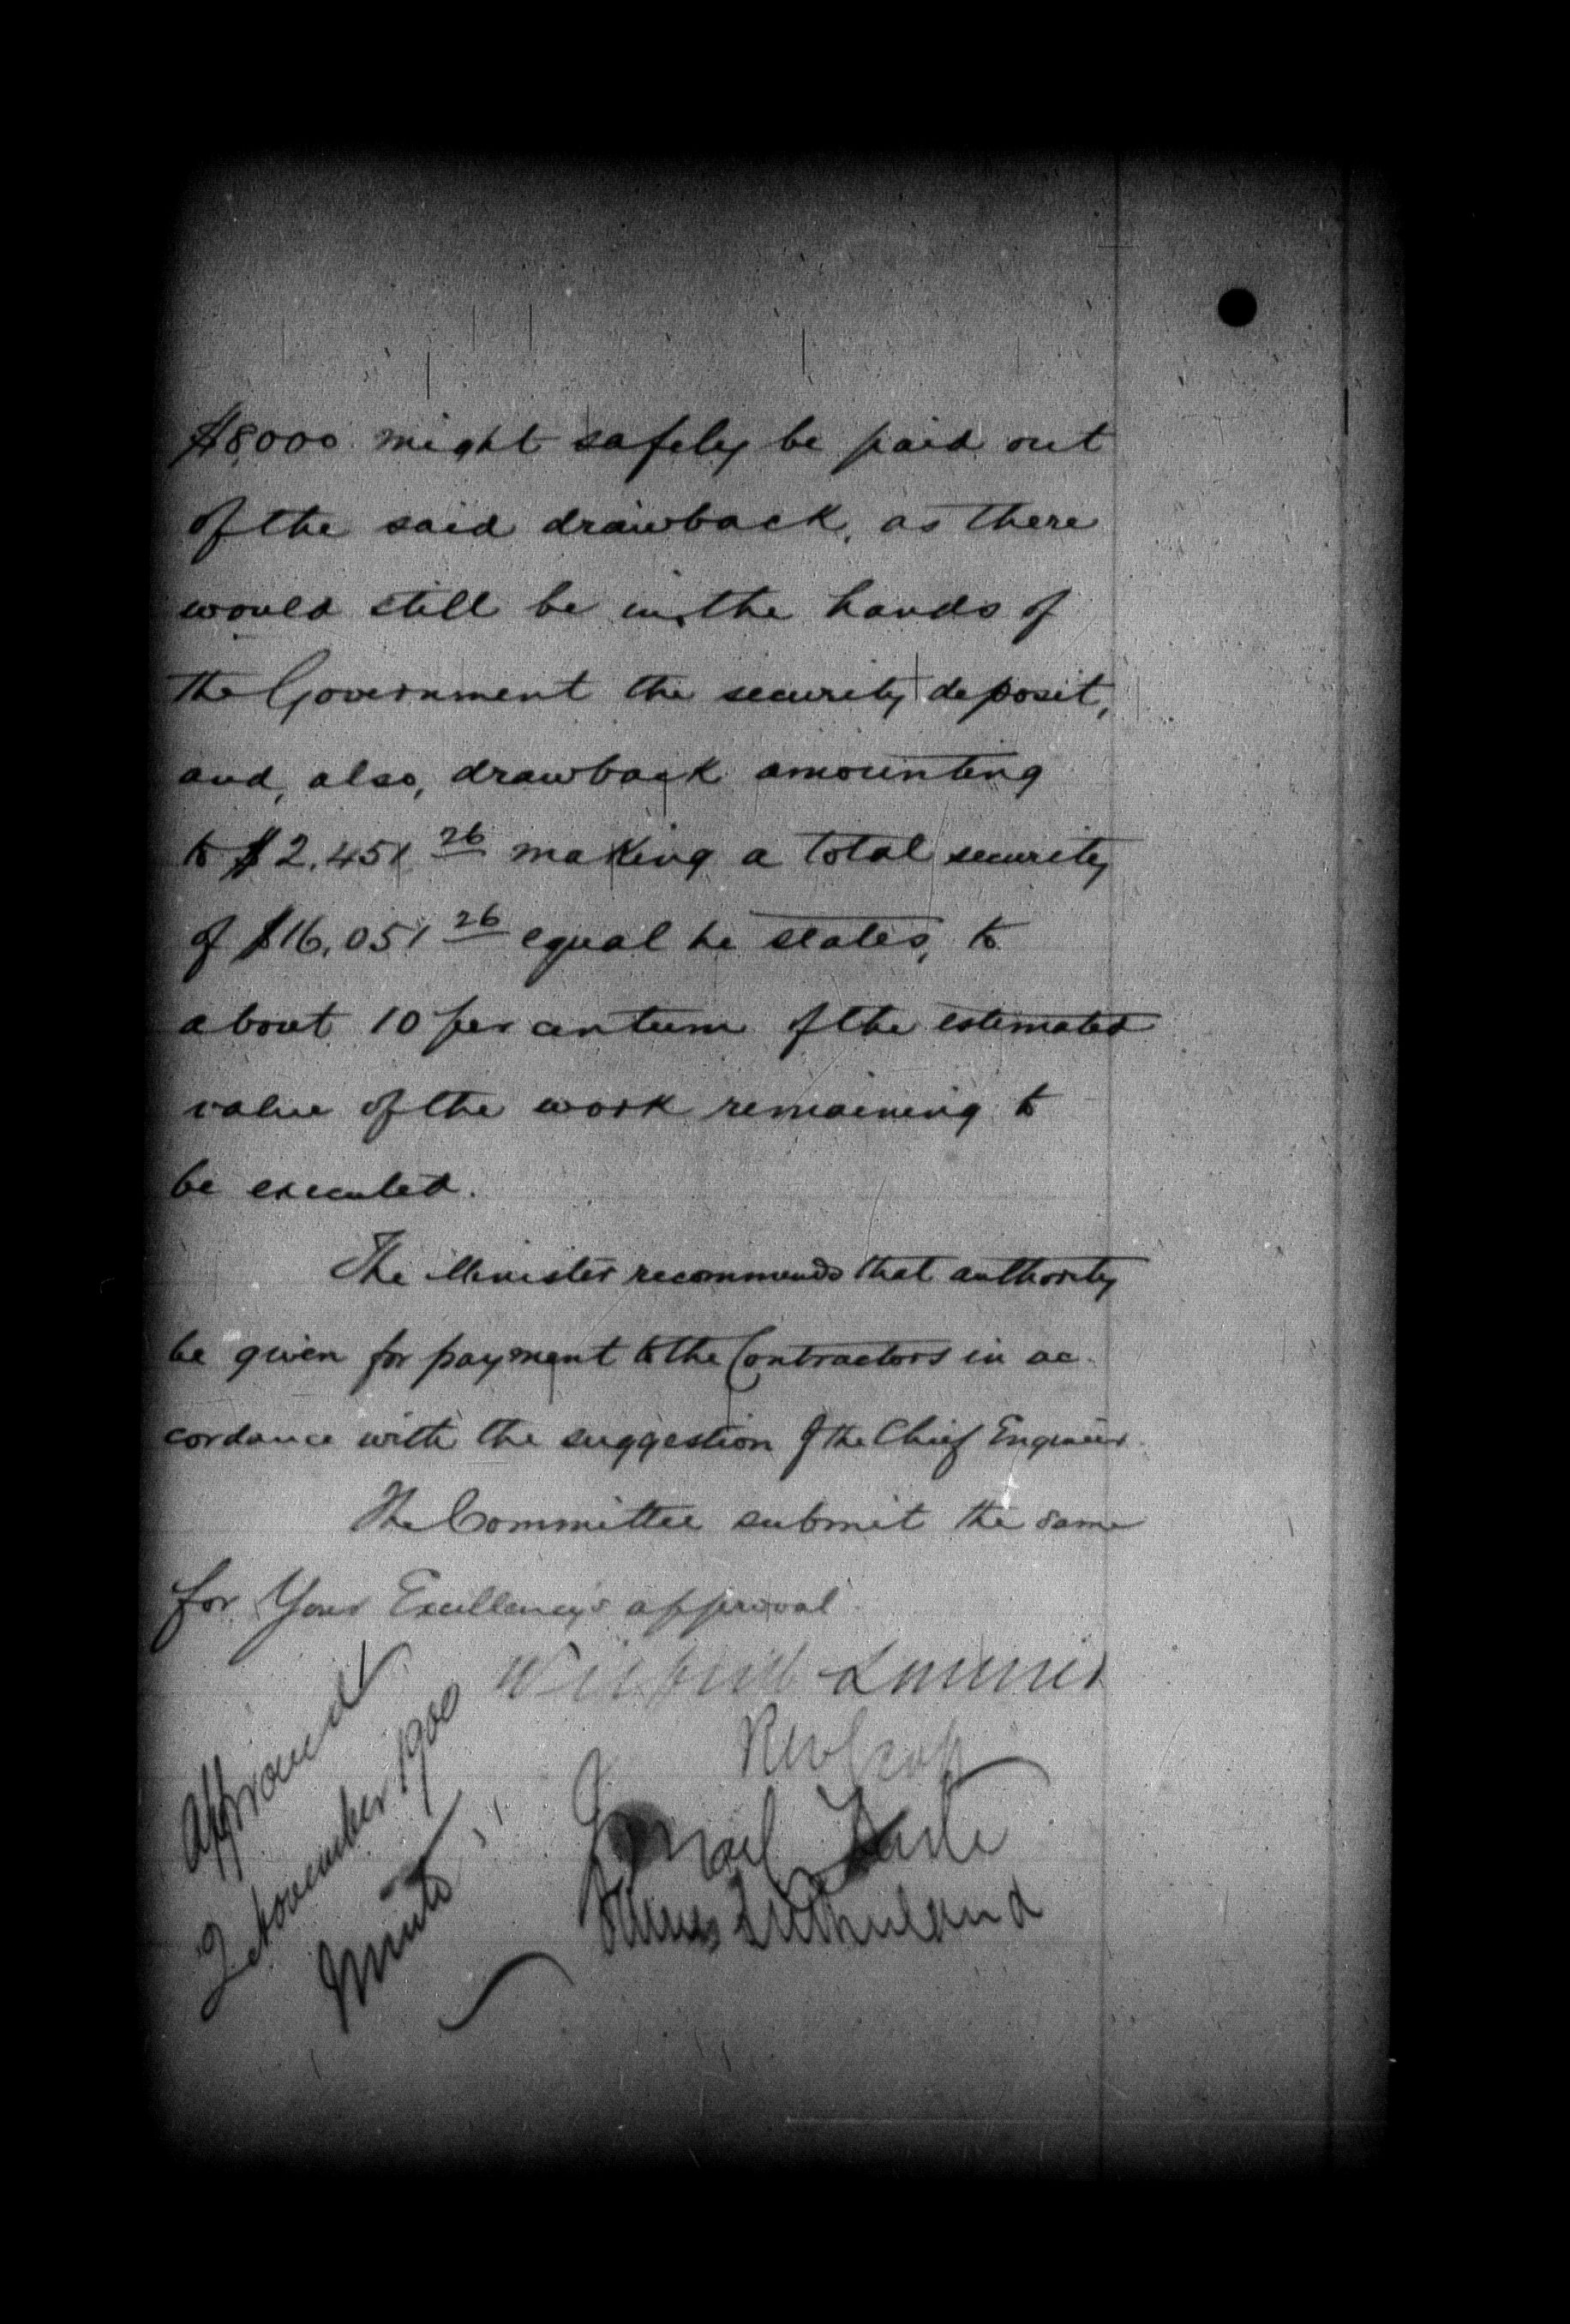 $8,000 might safely be paid out
of the said drawback, as there
would still be in the hands of
the Government the security deposit,
and, also, drawback amounting
to $2,451 26 making a total security
of $16,051 26 equal he states, to
about 10 per centum of the estimated
value of the work remaining to
be executed.
The Minister recommends that authority
be given for payment to the Contractors in ac-
cordance with the suggestion of the Chief Engineer.
The Committee submit the same
for Your Excellency's approval.
Wilfrid Laurier
RW Scott
Israel Tarte
James Sutherland
Approved
2 November 1900
Minto